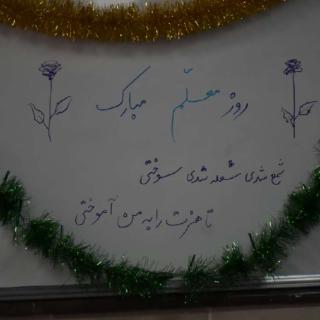 روز معلّم مبارک
شمع شدی شعله شدی سوختی
تا هنرت را به من آموختی